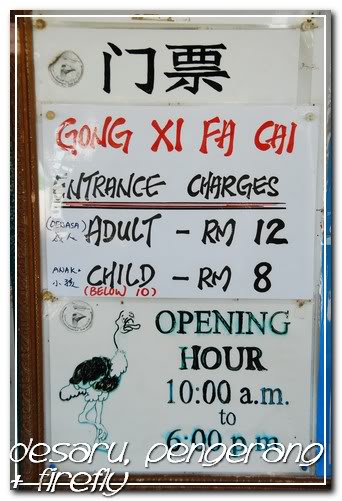 门票
GONG XI FA CAI
ENTRANCE CHARGES
(DEWASA) ADULT - RM 12
大人
ANAK² CHILD - RM 8
小孩 (BELOW 10)
OPENING
HOUR
10:00 a.m.
to
6:00 p.m.
desaru, pengerang
+ firefly